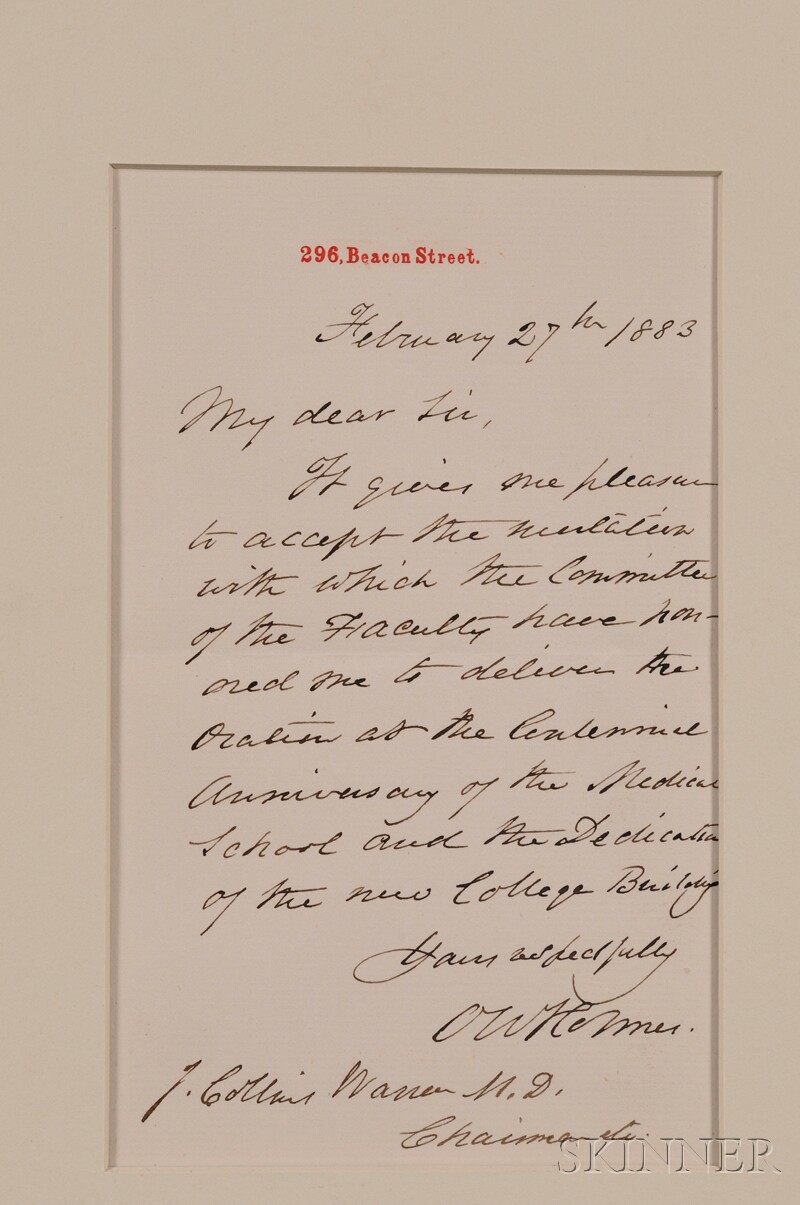 296, Beacon Street.
February 27th 1883
My dear Sir,
It gives me pleasure
to accept the invitation
with which the Committee
of the Faculty have hon-
ored me to deliver the
Oration at the Centennial
Anniversary of the Medical
School and the Dedication
of the new College Building
Yours respectfully
O W Holmes.
J. Collins Warren M. D.
Chairman &c.
SKINNER